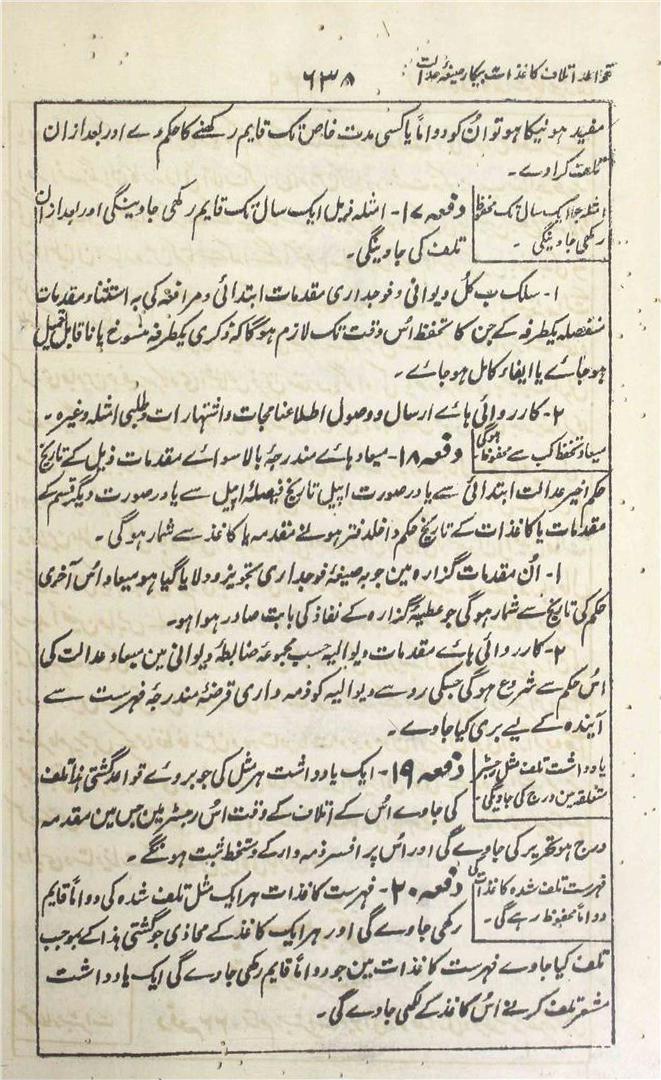 قواعد اتلاف کاغذات بیکار صیغۂ عدالت
۶۳۸
مفید ہونیکا ہو تو اُن کو دواماً یا کسی مدت خاص تک قایم رکھنے کا حکم دے اور بعد ازان
تلف کرا دے۔
امثلہ جو ایک سال تک محفوظ
رکھی جاوینگی۔
دفعہ ۱۷- امثلہ ذیل ایک سال تک قایم رکھی جاوینگی اور بعد ازان
تلف کی جاوینگی۔
۱- سلک ب کل دیوانی و فوجداری مقدمات ابتدائی و مرافعہ کی بہ استثناء مقدمات
منفصلہ یکطرفہ کے جن کا تحفظ اُس وقت تک لازم ہوگا کہ ڈگری یکطرفہ منسوخ یا ناقابل تعمیل
ہو جاے یا ایفاء کامل ہو جاے۔
۲- کارروائی ہاے ارسال و وصول اطلاعنامجات و اشتہارات و طلبی امثلہ وغیرہ۔
میعاد تحفظ کب سے محفوظ ہوگی
دفعہ ۱۸- میعاد ہاے مندرجۂ بالا سواے مقدمات ذیل کے تاریخ
حکم اخیر عدالت ابتدائی سے یا در صورت اپیل تاریخ فیصلۂ اپیل سے یا در صورت دیگر قسم کے
مقدمات یا کاغذات کے تاریخ حکم داخلدفتر ہونے مقدمہ یا کاغذ سے شمار ہوگی۔
۱- اُن مقدمات گزارہ مین جو بہ صیغۂ فوجداری تجویز و دلایا گیا ہو میعاد اُس آخری
حکم کی تاریخ سے شمار ہوگی جو عطیۂ گزارہ کے نفاذ کی بابت صادر ہوا ہو۔
۲- کارروائی ہاے مقدمات دیوالیہ حسب مجموعۂ ضابطۂ دیوانی مین میعاد عدالت کی
اُس حکم سے شروع ہوگی جسکی رو سے دیوالیہ کو ذمہ داری قرضۂ مندرجۂ فہرست سے
آیندہ کے لیے بری کیا جاوے۔
یادداشت تلف مثل رجسٹر
متعلقہ مین درج کی جاویگی۔
دفعہ ۱۹- ایک یادداشت ہر مثل کی جو بروے قواعد گشتی ہذا تلف
کی جاوے اُس کے اتلاف کے وقت اُس رجسٹر مین جس مین مقدمہ
درج ہو تحریر کی جاوے گی اور اُس پر افسر ذمہ دار کے دستخط ثبت ہونگے۔
فہرست تلف شدہ کاغذات کی
دواماً محفوظ رہے گی۔
دفعہ ۲۰- فہرست کاغذات ہر ایک مثل تلف شدہ کی دواماً قایم
رکھی جاوے گی اور ہر ایک کاغذ کے محاذی جو گشتی ہذا کے بموجب
تلف کیا جاوے فہرست کاغذات مین جو دواماً قایم رکھی جاوے گی ایک یادداشت
مشعر تلف کرنے اُس کاغذ کے لکھی جاوے گی۔